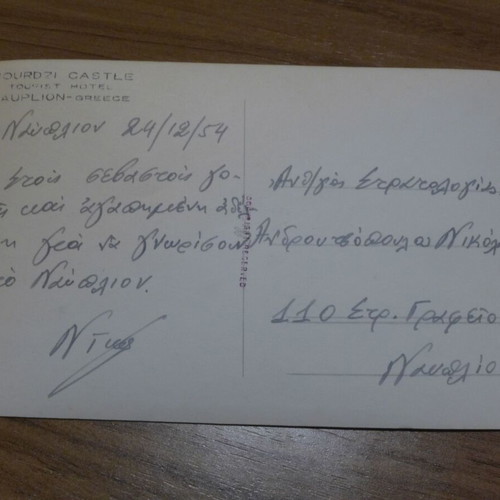 OURDZI CASTLE
TOURIST HOTEL
AUPLION-GREECE
Ναύπλιον 24/12/54
Στούς σεβαστούς γο-
καί ἀγαπημένη
γιά νά γνωρίσουν
τό Ναύπλιον.
Νίκος
Ανθ/γός Στρατολογίας
Ανδρουτσόπουλος Νικόλ
110 Στρ. Γραφείο
Ναυπλίο